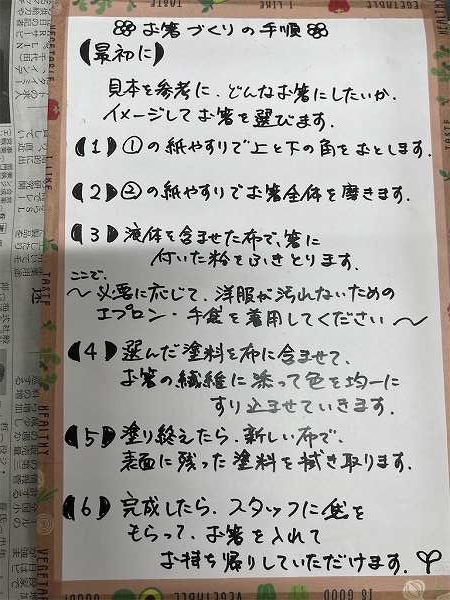 お箸づくりの手順
【最初に】
見本を参考に、どんなお箸にしたいか、
イメージしてお箸を選びます。
【1】①の紙やすりで上と下の角をおとします。
【2】②の紙やすりでお箸全体を磨きます。
【3】液体を含ませた布で、箸に
付いた粉をふきとります。
ここで、
～必要に応じて、洋服が汚れないための
エプロン・手袋を着用してください～
【4】選んだ塗料を布に含ませて、
お箸の繊維に添って色を均一に
すり込ませていきます。
【5】塗り終えたら、新しい布で、
表面に残った塗料を拭き取ります。
【6】完成したら、スタッフに袋を
もらって、お箸を入れて
お持ち帰りしていただけます。
TASTE
HEALTHY
VEGETABLE
I LIKE
IS GOOD